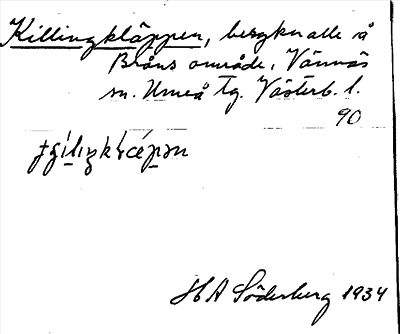 Killingkläppen, bergknalle å
Bråns område, Vännäs
sn. Umeå tg. Västerb. l.
90
HA Söderberg 1934